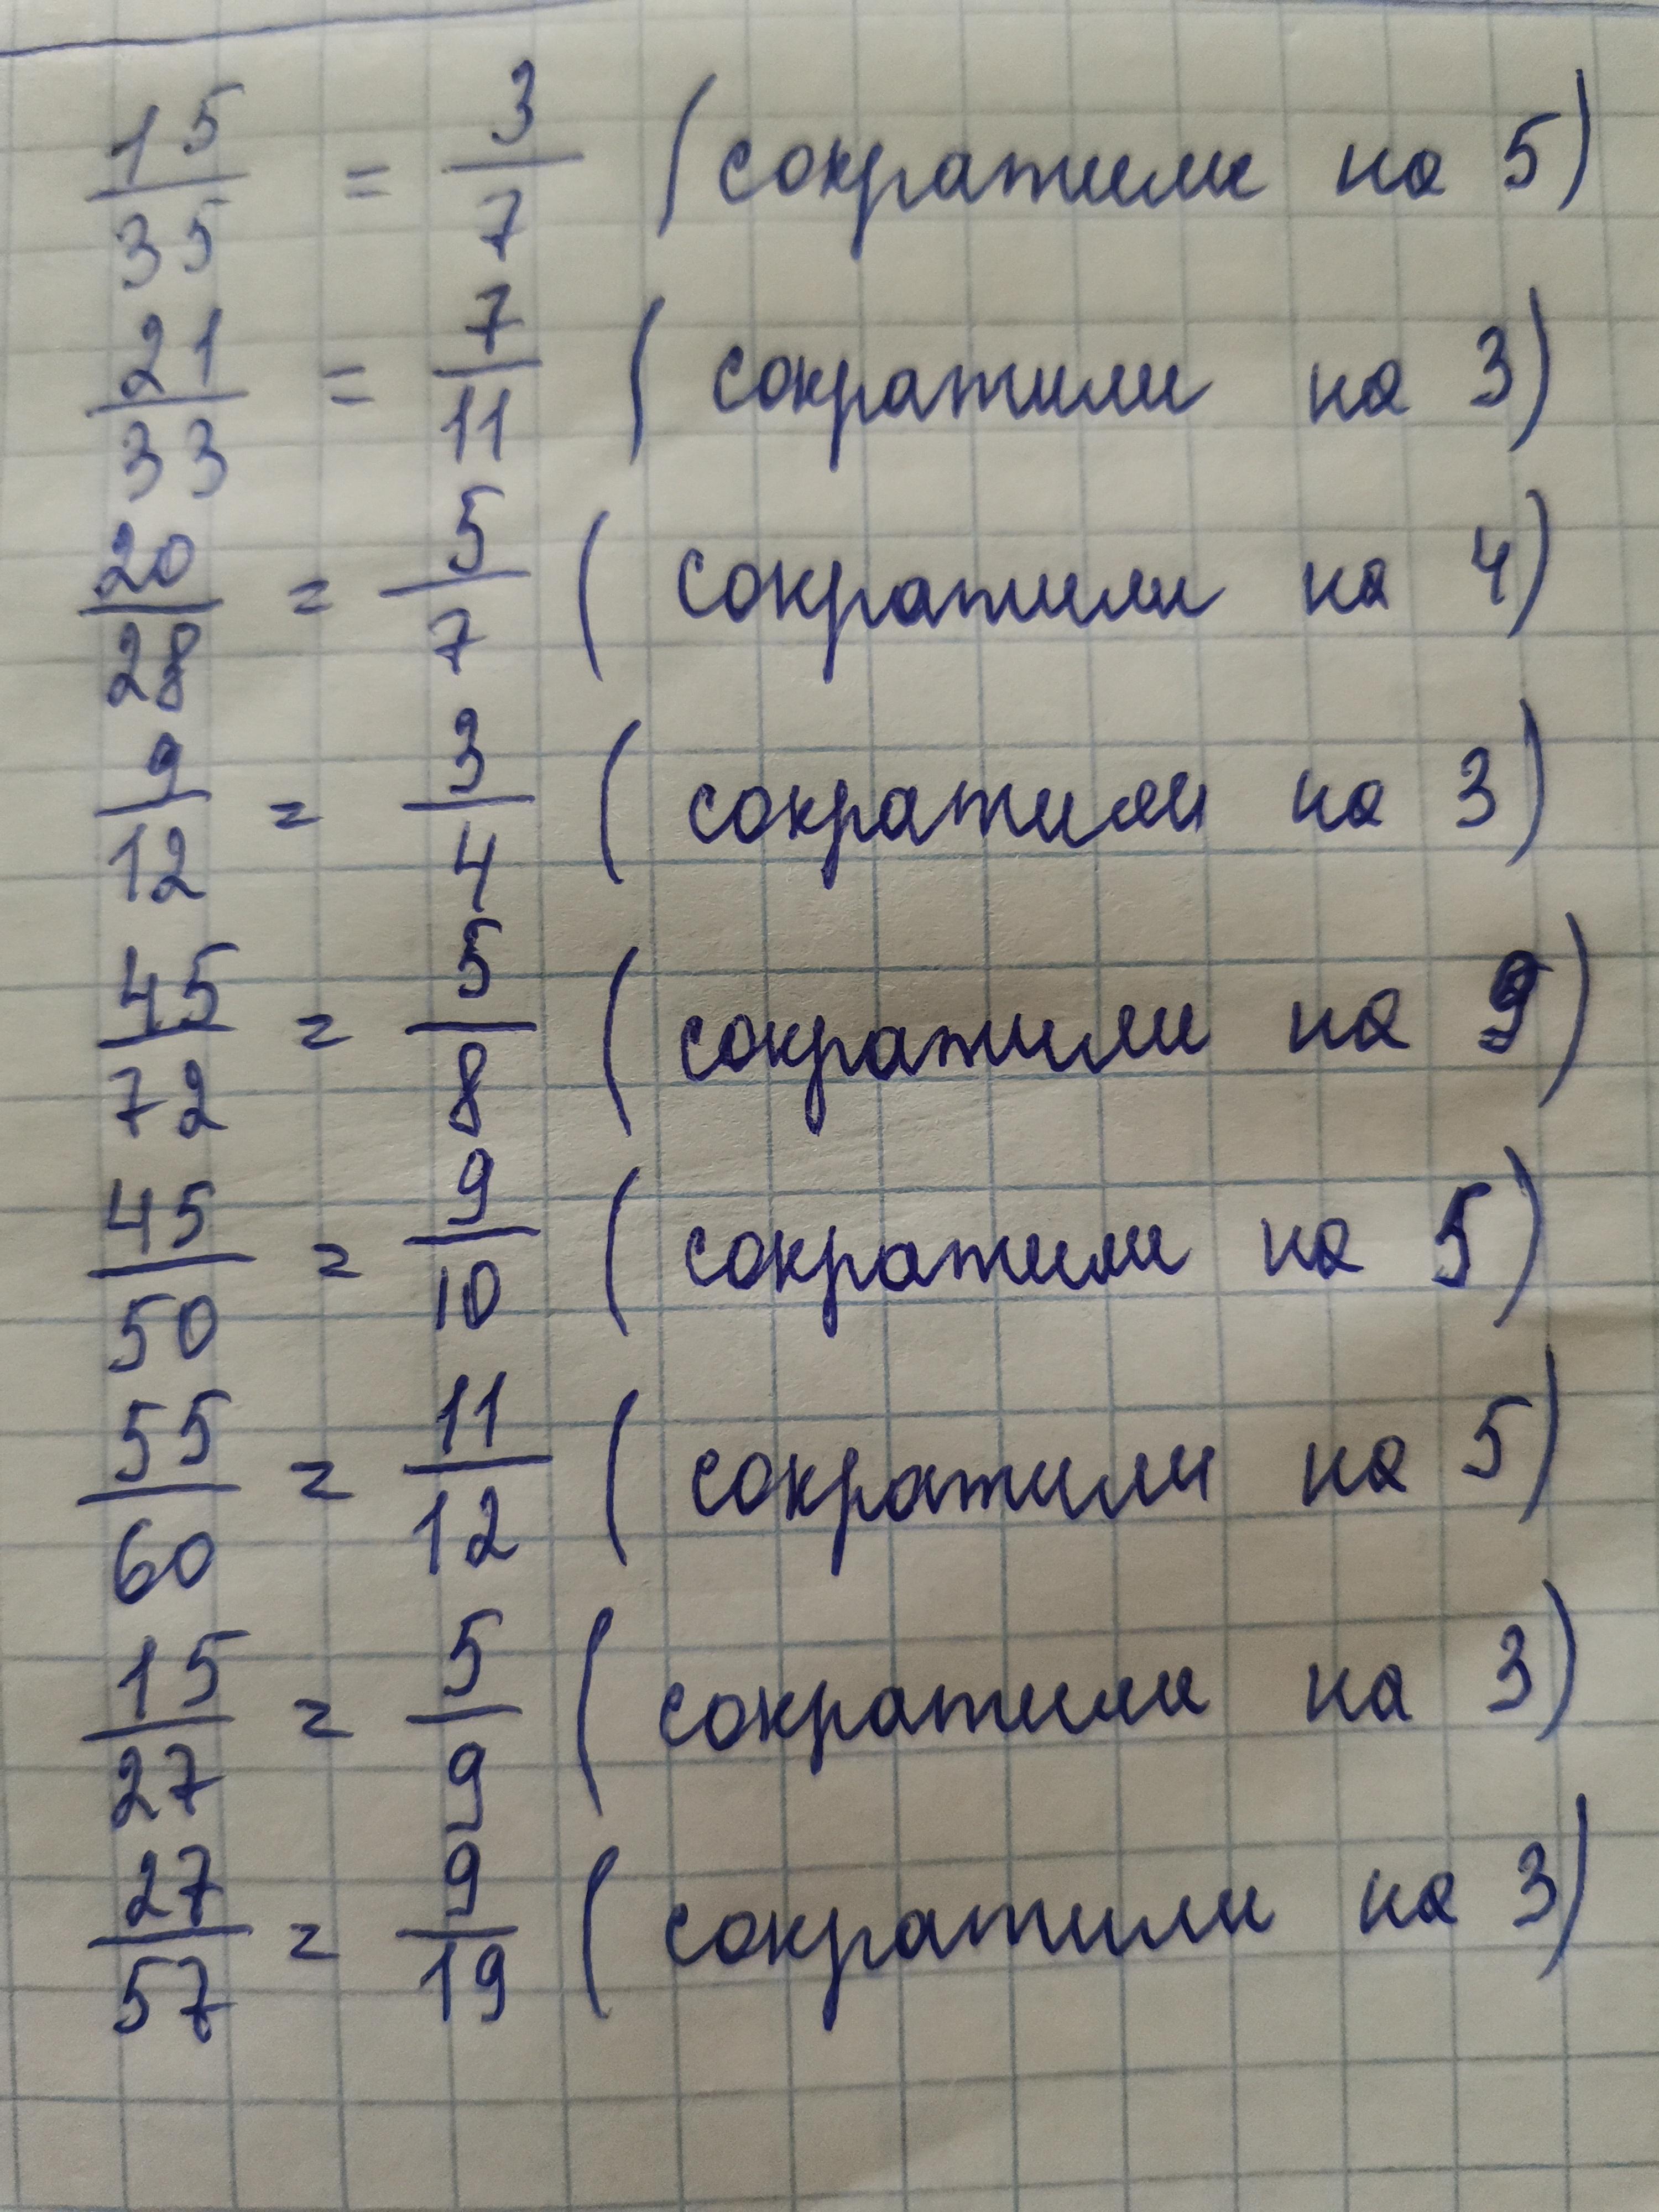 15/35 = 3/7 (сократили на 5)
21/33 = 7/11 (сократили на 3)
20/28 = 5/7 (сократили на 4)
9/12 = 3/4 (сократили на 3)
45/72 = 5/8 (сократили на 9)
45/50 = 9/10 (сократили на 5)
55/60 = 11/12 (сократили на 5)
15/27 = 5/9 (сократили на 3)
27/57 = 9/19 (сократили на 3)